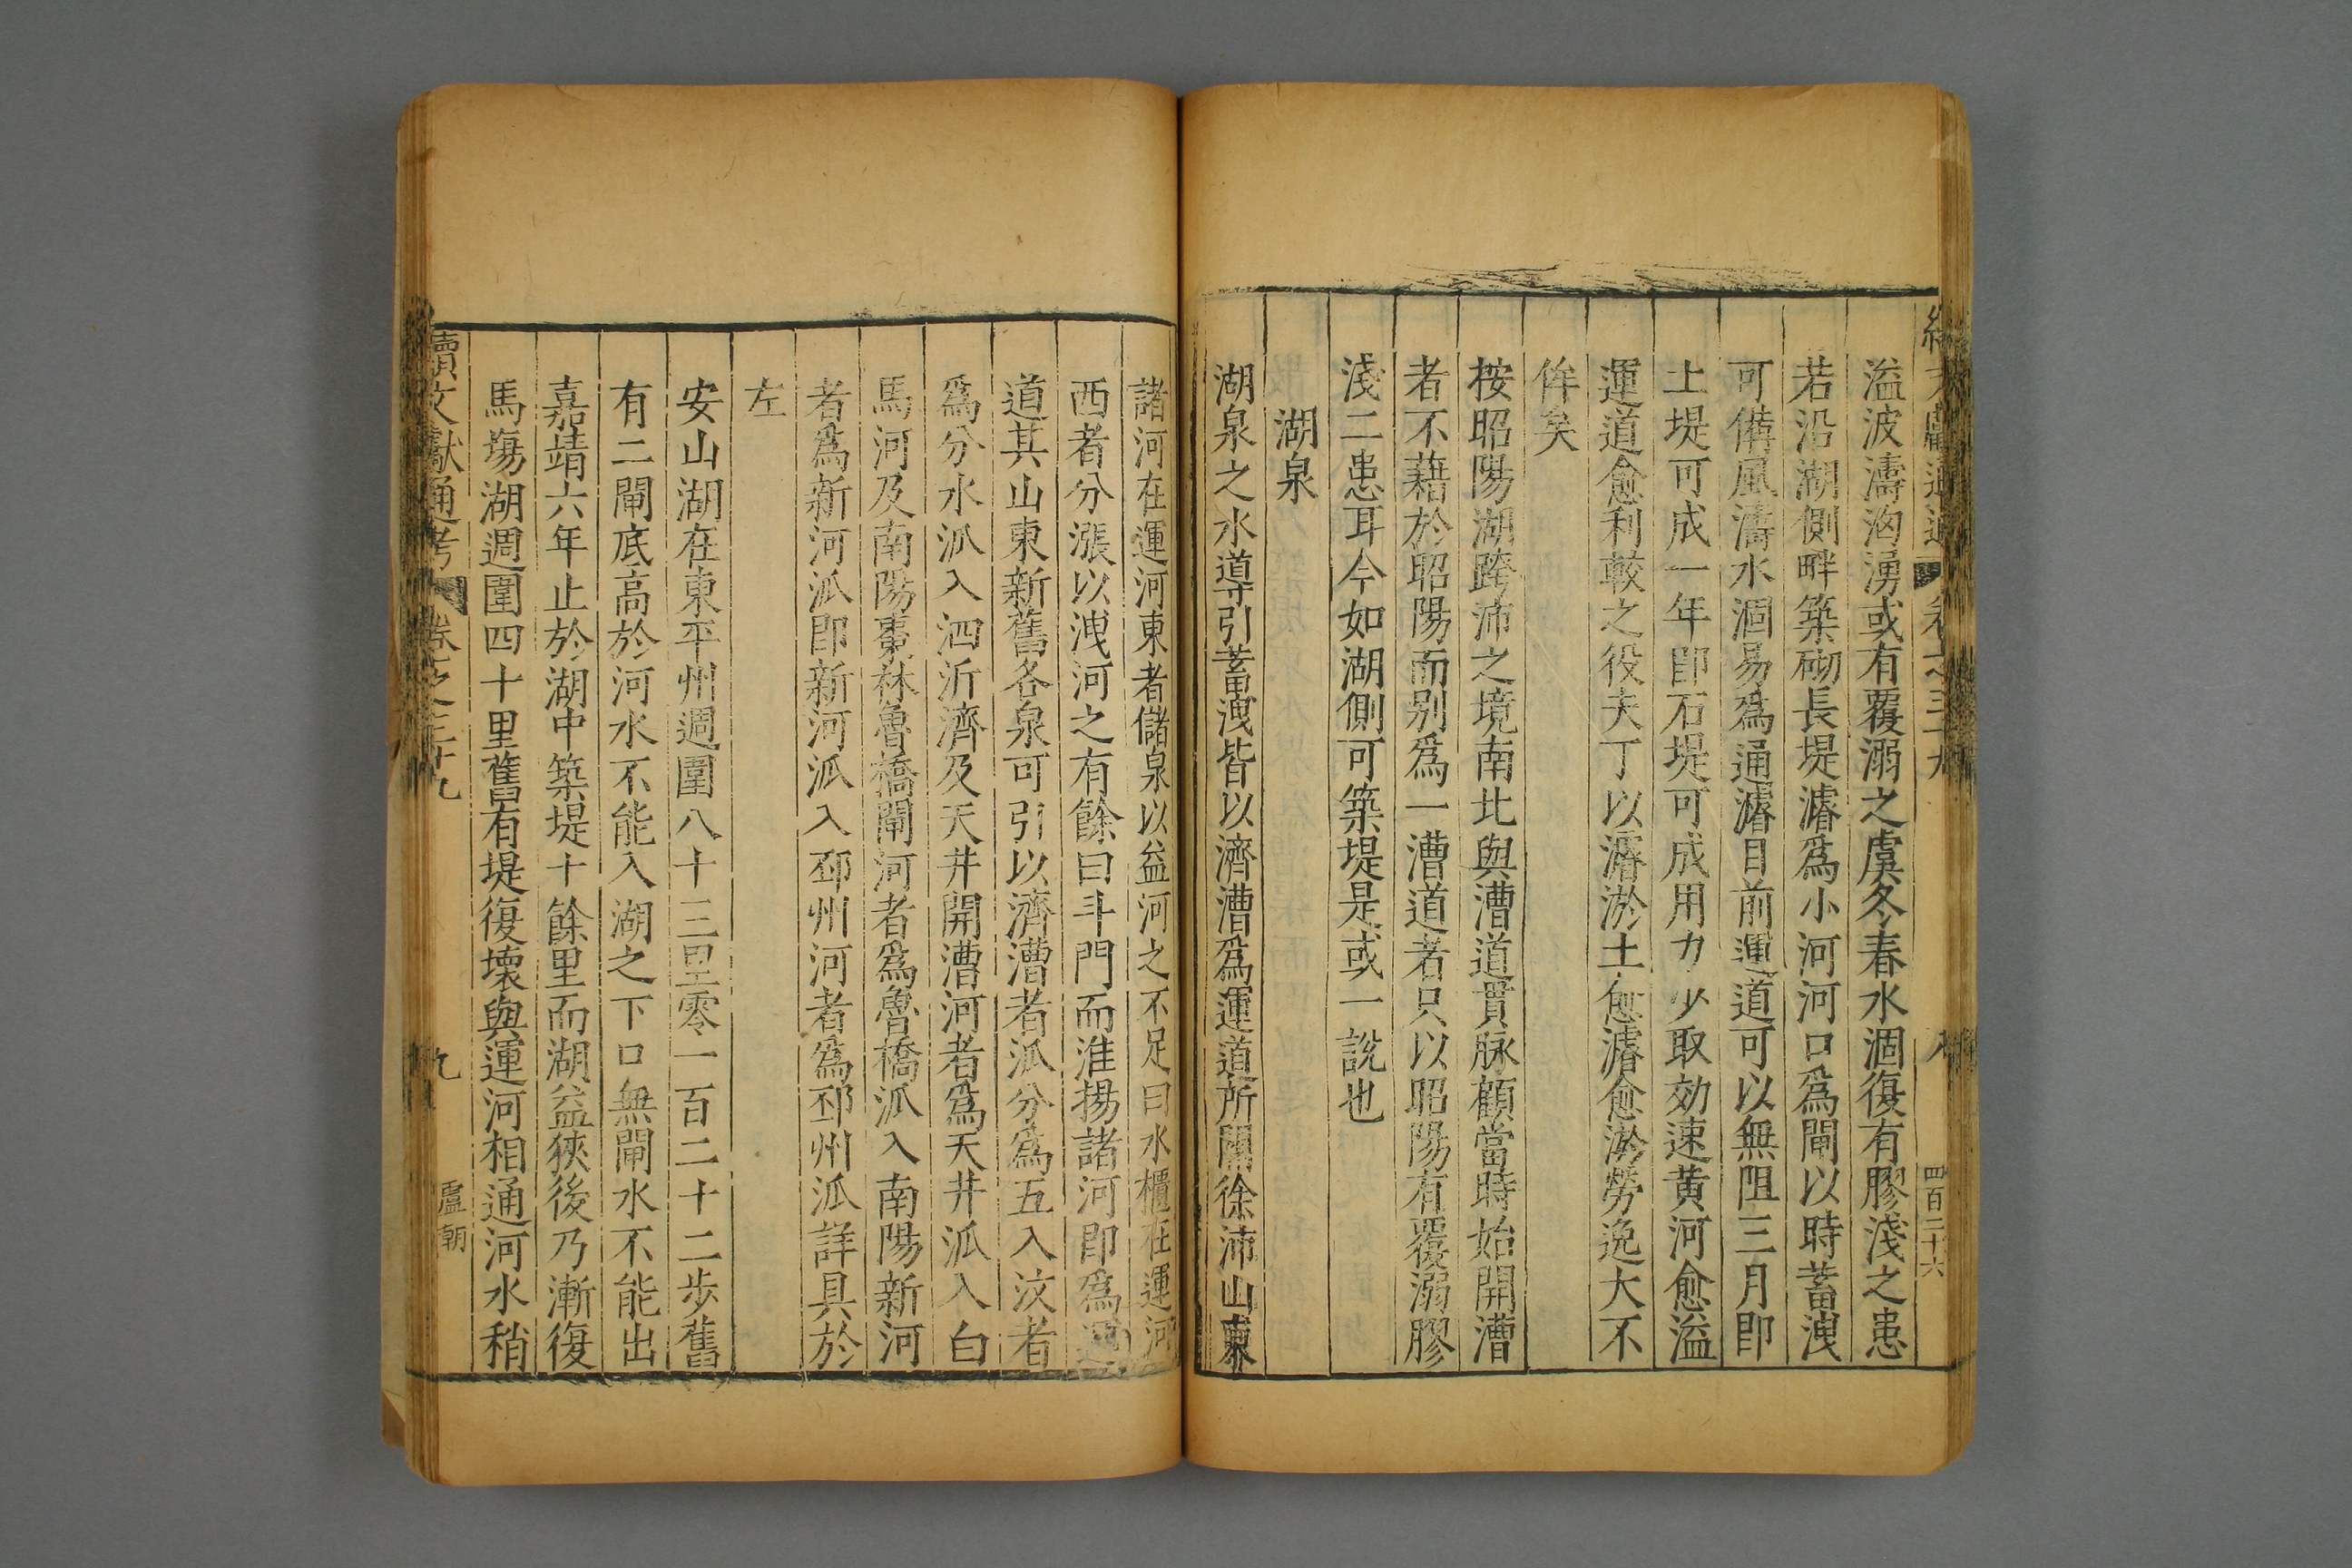 續文獻通考 卷之三十九 八 四百二十六
溢波濤洶湧或有覆溺之虞冬春水涸復有膠淺之患
若沿湖側畔築砌長堤濬爲小河河口爲閘以時蓄洩
可備風濤水涸易爲通濬目前運道可以無阻三月即
土堤可成一年即石堤可成用力少取効速黄河愈溢
運道愈利較之役夫丁以濬淤土愈濬愈淤勞逸大不
侔矣
按昭陽湖跨沛之境南北與漕道貫脉顧當時始開漕
者不藉於昭陽而别爲一漕道者只以昭陽有覆溺膠
淺二患耳今如湖側可築堤是或一說也
湖泉
湖泉之水導引蓄洩皆以濟漕爲運道所關徐沛山東
諸河在運河東者儲泉以益河之不足曰水櫃在運河
西者分漲以洩河之有餘曰斗門而淮揚諸河即爲運
道其山東新舊各泉可引以濟漕者泒分爲五入汶者
爲分水泒入泗沂濟及天井開漕河者爲天井泒入白
馬河及南陽棗林魯橋閘河者爲魯橋泒入南陽新河
者爲新河泒即新河泒入邳州河者爲邳州泒詳具於
左
安山湖在東平州週圍八十三里零一百二十二步舊
有二閘底高於河水不能入湖之下口無閘水不能出
嘉靖六年止於湖中築堤十餘里而湖益狹後乃漸復
馬塲湖週圍四十里舊有堤復壊與運河相通河水稍
續文獻通考 卷之三十九 九 盧朝